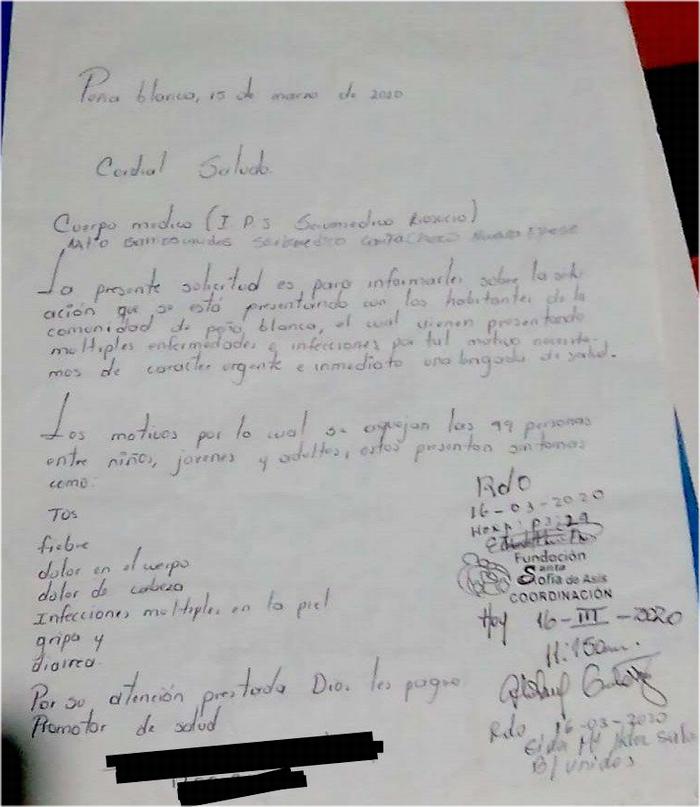 Peña blanca, 15 de marzo de 2020
Cordial Saludo.
Cuerpo medico (I.P.S Riosucio)
La presente solicitud es para informarles sobre la situ-
ación que se está presentando con los habitantes de la
comunidad de peña blanca, el cual vienen presentando
multiples enfermedades e infecciones por tal motivo necesita-
mos de caracter urgente e inmediato una brigada de salud.
Los motivos por lo cual se aquejan las 99 personas
entre niños, jovenes y adultos, estos presentan sintomas
como:
Tos
fiebre
dolor en el cuerpo
dolor de cabeza
Infecciones multiples en la piel
gripa y
diarrea.
Por su atención prestada Dios les pague
Promotor de salud
Rdo
16-03-2020
Fundación
Santa
Sofía de Asis
COORDINACIÓN
Hoy 16-III-2020
Rdo 16-03-2020
B/unidos